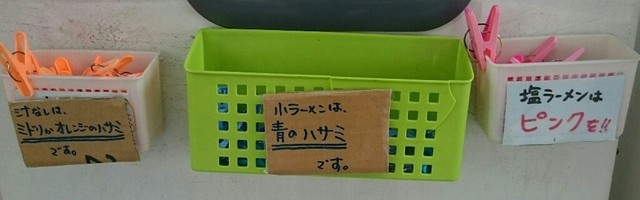 汁なしは、
ミドリかオレンジのハサミ
です。
小ラーメンは、
青のハサミ
です。
塩ラーメンは
ピンクを!!